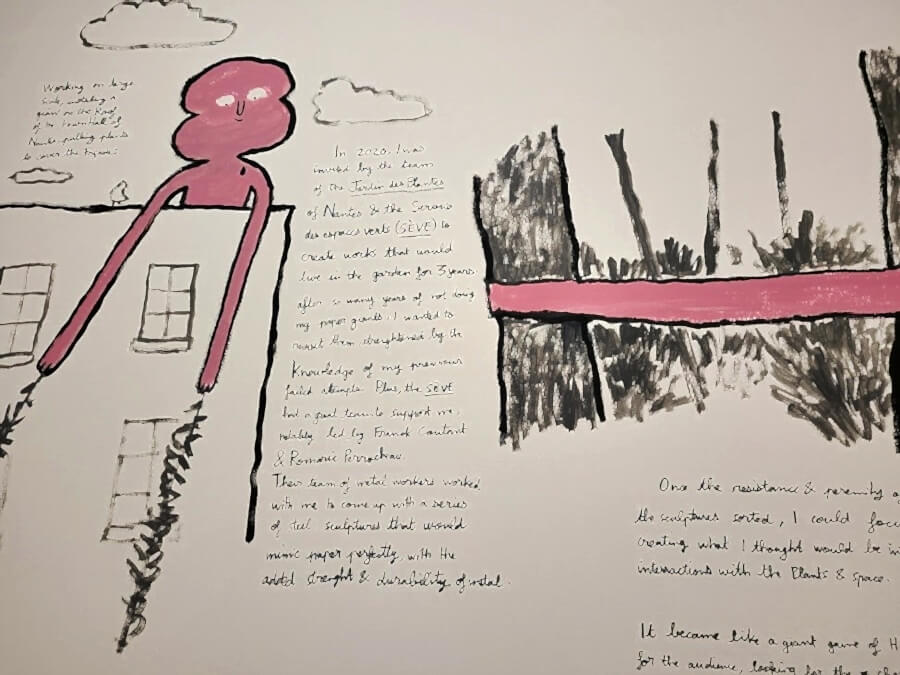 Working on large
scale, installing a
giant on the Roof
of the Townhall of
Nantes, pulling plants
to cover the Figure:
In 2020, I was
invited by the team
of the Jardin des Plantes
of Nantes & the Service
des espaces verts (SÈVE) to
create works that would
live in the garden for 3 years.
after so many years of not doing
my paper giants, I wanted to
revisit them, strenghtened by the
Knowledge of my previous
failed attempts. Plus, the SEVE
had a great team to support me,
notably led by Franck Coutant
& Romaric Perrocheau.
Their team of metal workers worked
with me to come up with a series
of steel sculptures that would
mimic paper perfectly, with the
added strenght & durability of metal.
Once the resistance & perenity of
the sculptures sorted, I could
creating what I thought would be
interactions with the Plants & space.
It became like a giant game of
for the audience, looking for the